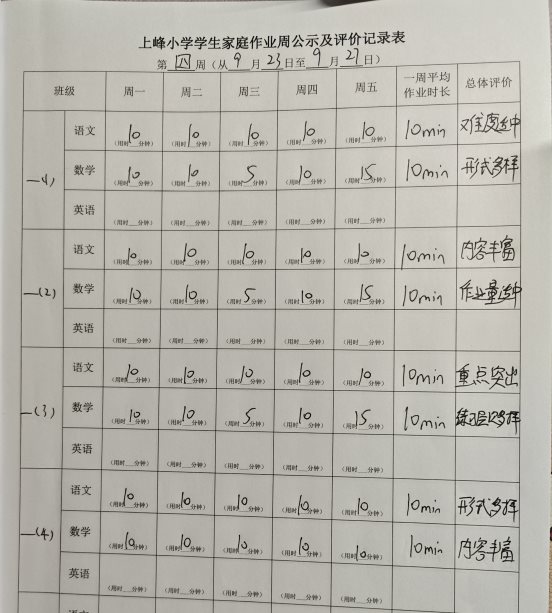 上峰小学学生家庭作业周公示及评价记录表
第 四 周（从 9 月 23 日至 9 月 27 日）
班级 周一 周二 周三 周四 周五 一周平均作业时长 总体评价
一（1）
语文 10（用时 分钟） 10（用时 分钟） 10（用时 分钟） 10（用时 分钟） 10（用时 分钟） 10min 难度适中
数学 10（用时 分钟） 10（用时 分钟） 5（用时 分钟） 10（用时 分钟） 15（用时 分钟） 10min 形式多样
英语 （用时 分钟） （用时 分钟） （用时 分钟） （用时 分钟） （用时 分钟）
一（2）
语文 10（用时 分钟） 10（用时 分钟） 10（用时 分钟） 10（用时 分钟） 10（用时 分钟） 10min 内容丰富
数学 10（用时 分钟） 10（用时 分钟） 5（用时 分钟） 10（用时 分钟） 15（用时 分钟） 10min 作业量适中
英语 （用时 分钟） （用时 分钟） （用时 分钟） （用时 分钟） （用时 分钟）
一（3）
语文 10（用时 分钟） 10（用时 分钟） 10（用时 分钟） 10（用时 分钟） 10（用时 分钟） 10min 重点突出
数学 10（用时 分钟） 10（用时 分钟） 5（用时 分钟） 10（用时 分钟） 15（用时 分钟） 10min 多样
英语 （用时 分钟） （用时 分钟） （用时 分钟） （用时 分钟） （用时 分钟）
一（4）
语文 10（用时 分钟） 10（用时 分钟） 10（用时 分钟） 10（用时 分钟） 10（用时 分钟） 10min 形式多样
数学 10（用时 分钟） 10（用时 分钟） 10（用时 分钟） 10（用时 分钟） 10（用时 分钟） 10min 内容丰富
英语 （用时 分钟） （用时 分钟） （用时 分钟） （用时 分钟） （用时 分钟）